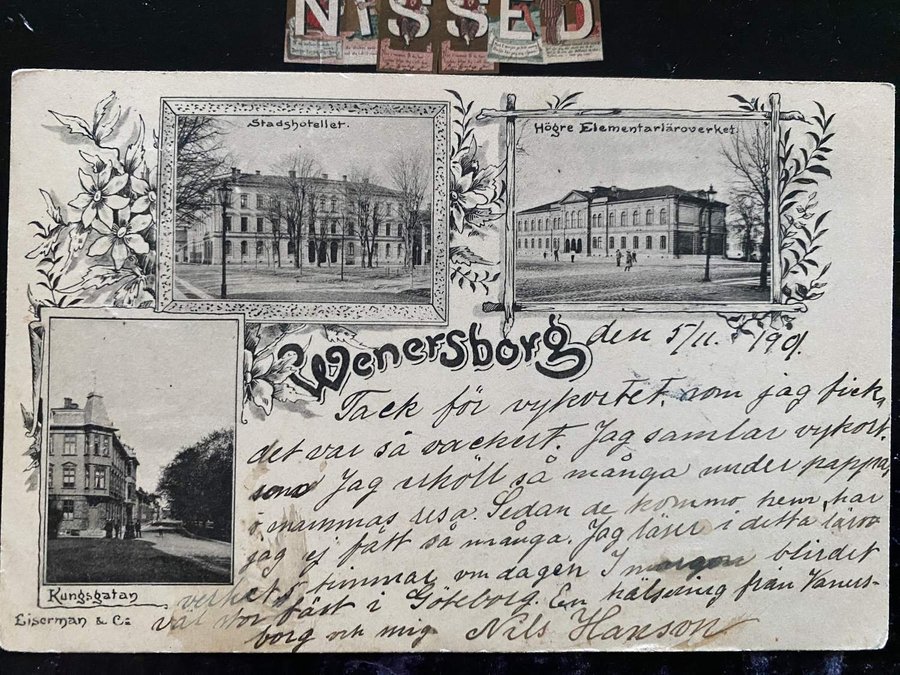 NISSED
Stadshotellet.
Högre Elementarläroverket.
Wenersborg
den 5/11. 1901.
Tack för vykortet, som jag fick,
det var så vackert. Jag samlar vykort.
Jag erhöll så många under pappas
o. mammas resa. Sedan de kommo hem har
jag ej fått så många. Jag läser i detta läro-
verket, timmar om dagen I morgon blir det
väl stor fäst i Göteborg. En hälsning från Väners-
borg och mig Nils Hanson
Kungsgatan
Eiserman & C:o